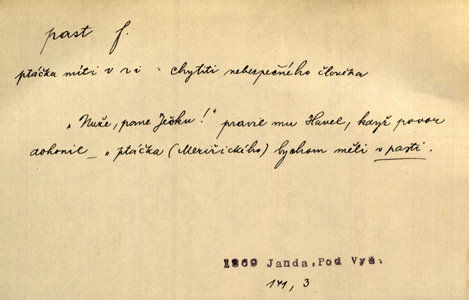 past f.
ptáčka míti v ‑i - chytiti nebezpečného člověka
„Nuže, pane Ješku!" pravil mu Havel, když povoz
dohonil – „ptáčka (Meziříckého) bychom měli v pasti.
1869 Janda, Pod Vyš.
141, 3